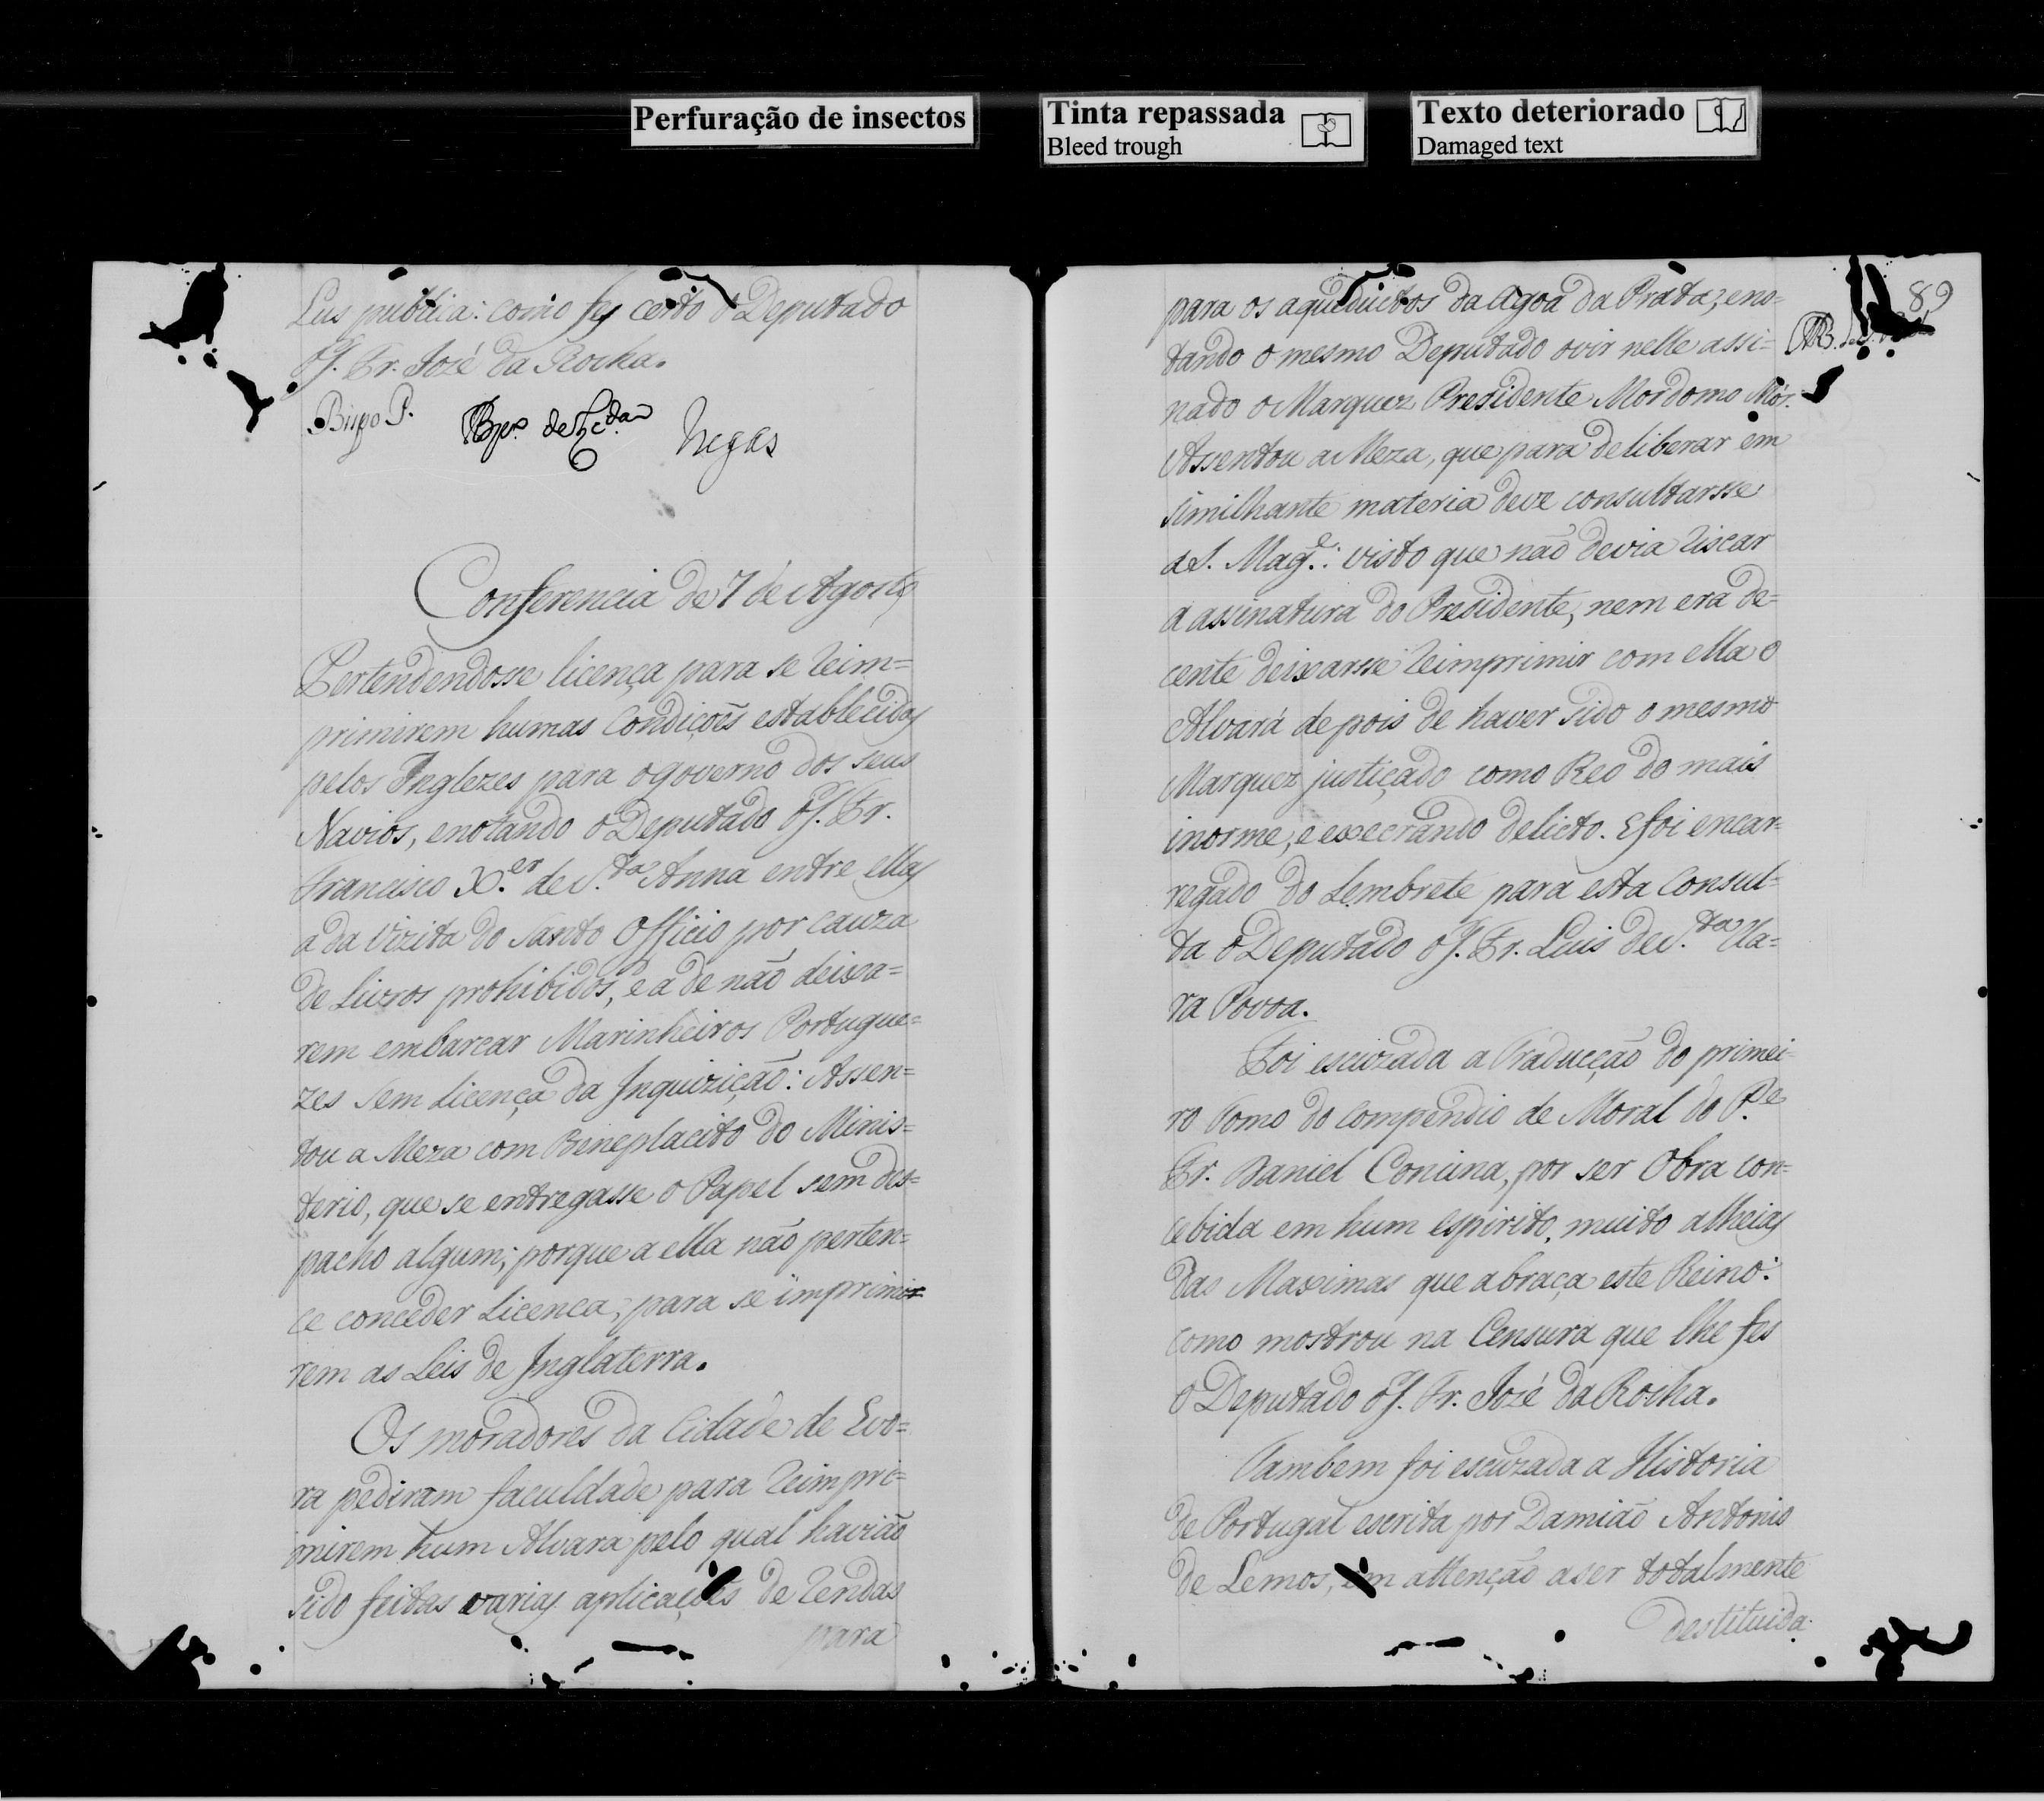 Perfuração de insectos
Tinta repassada
Bleed trough
Texto deteriorado
Damaged text
Lus publica: como fes certo o Deputado
o P. Fr. Jozé da Rocha.
Bispo P.
Conferencia de 7 de Agosto
Pertendendosse licença para se reim=
primirem humas Condiçoẽs establecidas
pelos Inglezes para o governo dos seus
Navios, e notando o Deputado o P. Fr.
Francisco X.er de S.ta Anna entre ellas
a da Vizita do Santo Officio por cauza
de Livros prohibidos, e a de não deixa=
rem embarcar Marinheiros Portugue=
zes sem Licença da Inquizição: Assen=
tou a Meza com Beneplacito do Minis=
terio, que se entregasse o Papel sem des=
pacho algum; porque a ella não perten=
ce conceder Licenca, para se imprimi
rem as Leis de Inglaterra.
Os moradores da Cidade de Evo=
ra pediram faculdade para reimpri=
mirem hum Alvara pelo qual havião
sido feitas varias aplicaçoẽs de rendas
para
89
para os aqueductos da agoa da Prata; eno=
tando o mesmo Deputado o vir nelle assi=
nado o Marquez Presidente Mordomo Mór.
Assentou a Meza, que para deliberar em
similhante materia deve consultarsse
a S. Mag.e: visto que não devia riscar
a assinatura do Presidente, nem era de=
cente deixarsse reimprimir com ella o
Alvará depois de haver sido o mesmo
Marquez justiçado como Reo do mais
inorme, e execrando delicto. E foi encar=
regado do Lembrete para esta Consul=
ta o Deputado o P. Fr. Luis de S.ta Cla=
ra Povoa.
Foi escuzada a Traducção do primei=
ro Tomo do Compendio de Moral do P.e
Fr. Daniel Concina, por ser Obra con=
cebida em hum espirito, muito alheias
das Maximas que abraça este Reino:
como mostrou na Censura que lhe fes
o Deputado o P. Fr. Jozé da Rocha.
Tambem foi escuzada a Historia
de Portugal escrita por Damião Antonio
de Lemos, em attenção a ser totalmente
destituida